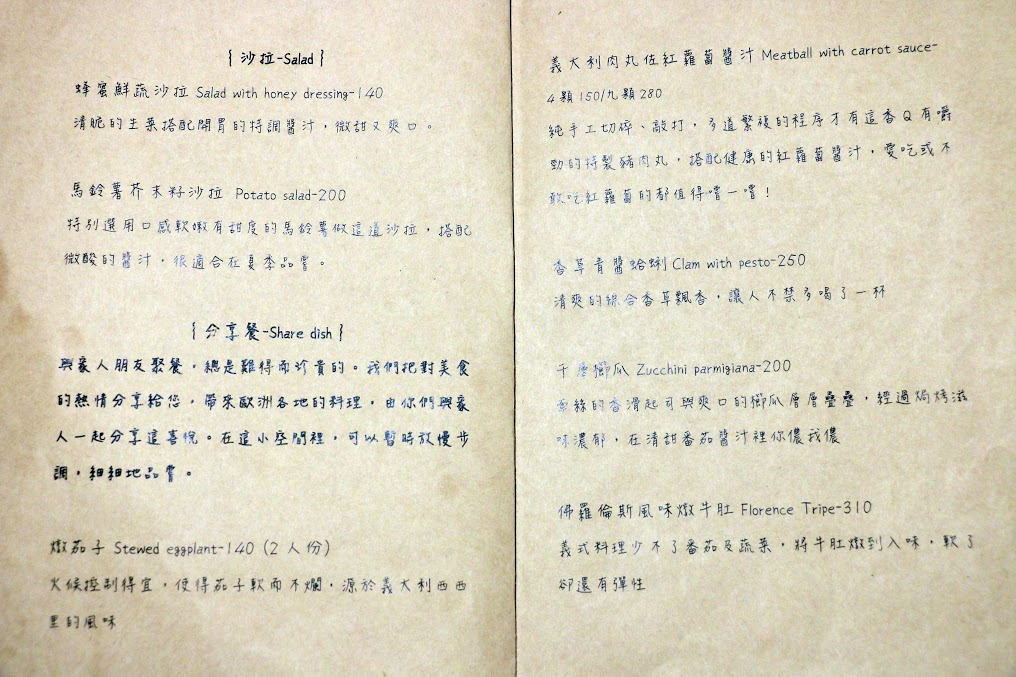 { 沙拉-Salad }
蜂蜜鮮蔬沙拉 Salad with honey dressing-140
清脆的生菜搭配開胃的特調醬汁，微甜又爽口。
馬鈴薯芥末籽沙拉 Potato salad-200
特別選用口感軟嫩有甜度的馬鈴薯做這道沙拉，搭配
微酸的醬汁，很適合在夏季品嘗。
{ 分享餐-Share dish }
與家人朋友聚餐，總是難得而珍貴的。我們把對美食
的熱情分享給您，帶來歐洲各地的料理，由你們與家
人一起分享這喜悅。在這小空間裡，可以暫時放慢步
調，細細地品嘗。
燉茄子 Stewed eggplant-140 (2 人份)
火候控制得宜，使得茄子軟而不爛，源於義大利西西
里的風味
義大利肉丸佐紅蘿蔔醬汁 Meatball with carrot sauce-
4 顆 150/九顆 280
純手工切碎、敲打，多道繁複的程序才有這香 Q 有嚼
勁的特製豬肉丸，搭配健康的紅蘿蔔醬汁，愛吃或不
敢吃紅蘿蔔的都值得嚐一嚐！
香草青醬蛤蜊 Clam with pesto-250
清爽的綜合香草飄香，讓人不禁多喝了一杯
千層櫛瓜 Zucchini parmigiana-200
牽絲的香滑起司與爽口的櫛瓜層層疊疊，經過焗烤滋
味濃郁，在清甜番茄醬汁裡你儂我儂
佛羅倫斯風味燉牛肚 Florence Tripe-310
義式料理少不了番茄及蔬菜，將牛肚燉到入味，軟了
卻還有彈性